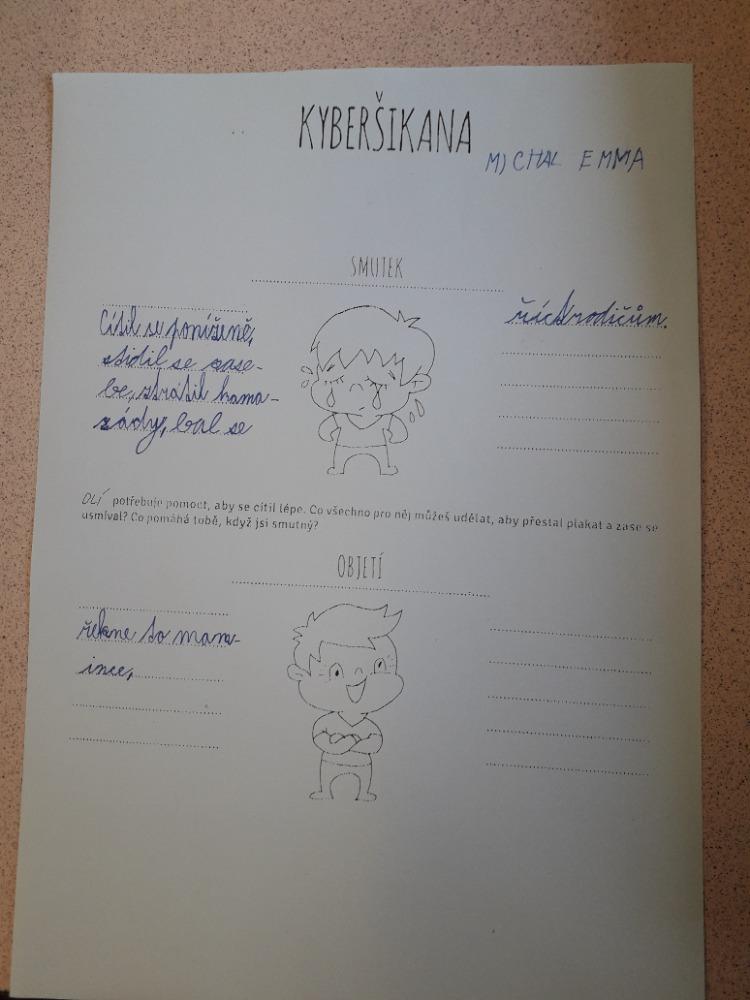 KYBERŠIKANA
MICHAL EMMA
SMUTEK
Cítil se poníženě,
stidil se za se-
be, ztrátil kama-
rády, bal se
říct rodičům.
OLÍ potřebuje pomoct, aby se cítil lépe. Co všechno pro něj můžeš udělat, aby přestal plakat a zase se
usmíval? Co pomáhá tobě, když jsi smutný?
OBJETÍ
řekne to mam-
ince,